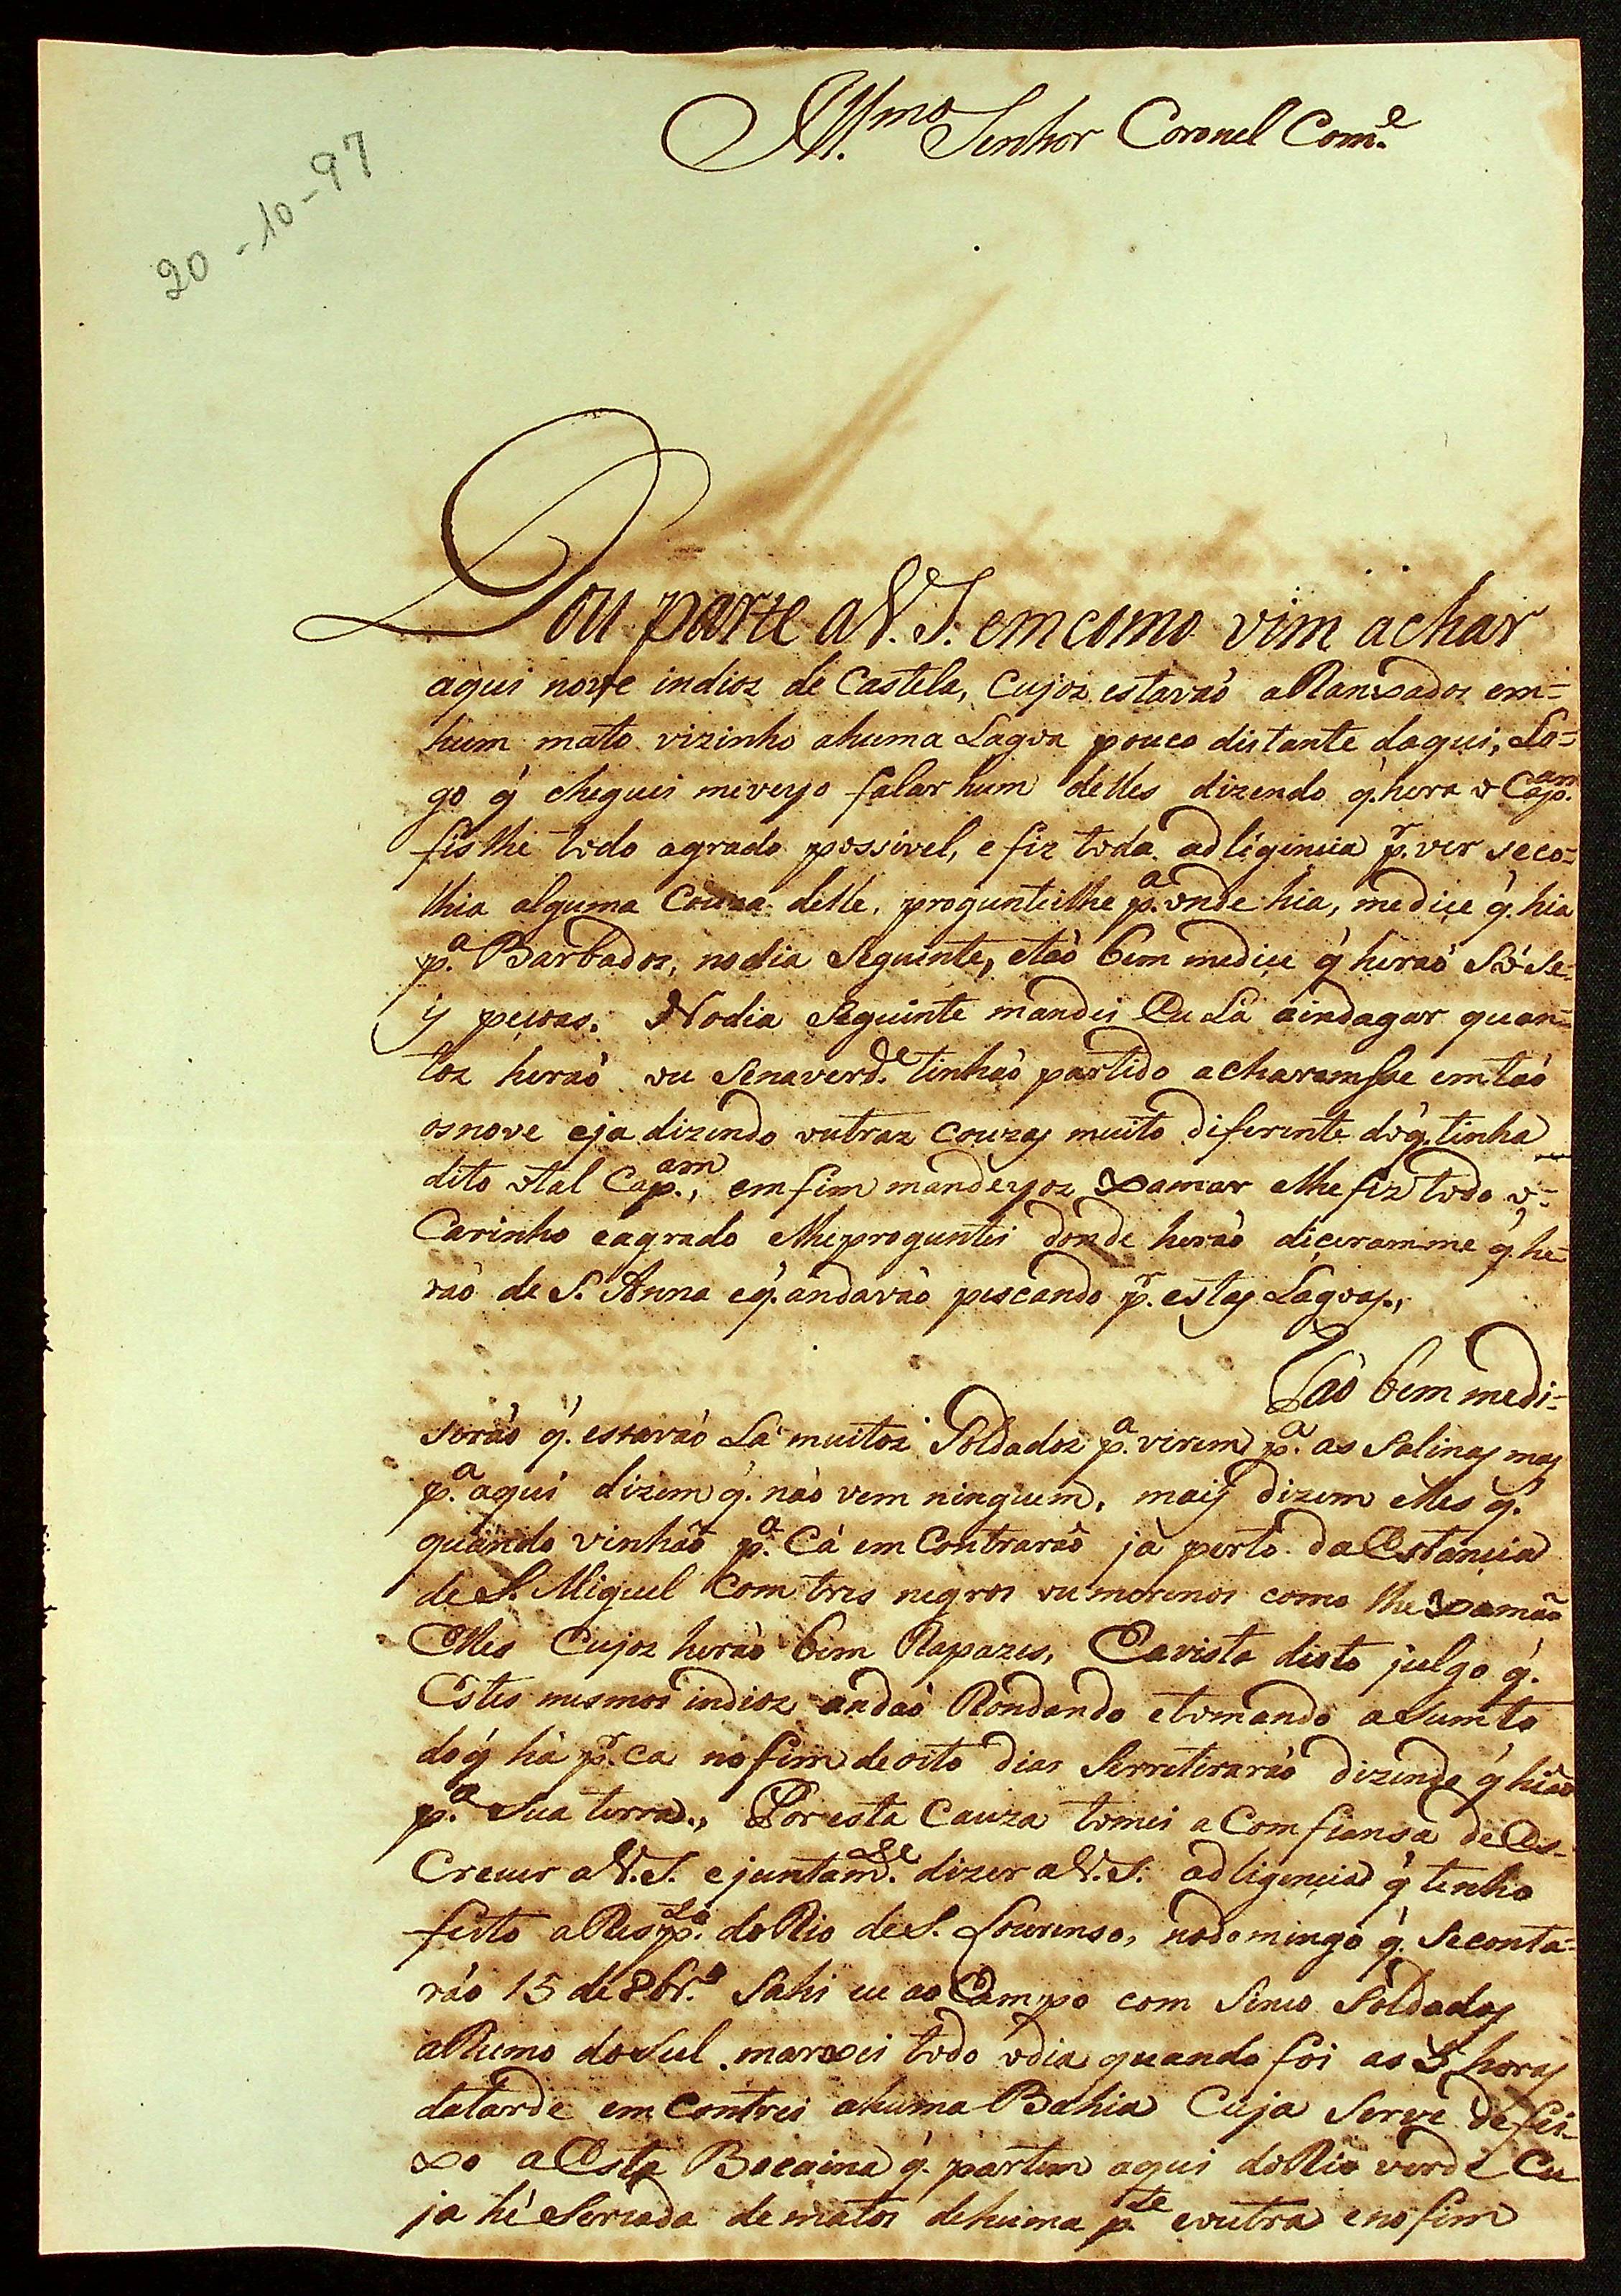 Ill.mo Senhor Coronel Com.e
20-10-97
Dou parte aV.S. emcomo vim achar
aqui nove indios de Castela, Cujoz estavaõ aRanxados em=
hum mato vizinho ahuma Lagoa pouco distante daqui, Lo=
go q̃ cheguei meveyo falar hum delles dizendo q̃. hera o Cap.am
fislhe todo agrado possivel, e fiz toda adligencia p.r ver seco=
lhia alguma Couza delle, progunteilhe p.a onde hia, mediçe q̃. hia
p.a Barbados, nodia Seguinte, etaõ bem mediçe q̃ heraõ Só Se=
ÿ peçoas. Nodia Seguinte mandei Eu Lá aindagar quan=
toz heraõ ou Senaverd.e tinhaõ partido acharamsse emtaõ
osnove eja dizendo outraz couzas muito diferente doq̃. tinha
dito otal Cap.am, emfim mandeyoz xamar elhe fiz todo o=
Carinho eagrado elheproguntei donde heraõ diçeramme q̃. he=
raõ de S. Anna eq̃. andavaõ pescando p.r estas Lagoas.,
Taõ bem medi=
seraõ q̃. estavaõ Lá muitoz Soldadoz p.a virem p.a as Salinas mas
p.a aqui dizem q̃. naõ vem ninguem, maiz dizem elles q̃.
quando vinhaõ p.a Cá emContraraõ já perto daEstancia
de S. Miguel Com tres negros ou morenos como lhe xamaõ
Elles Cujoz heraõ bem Rapazes, Eavista disto julgo q̃.
Estes mesmos indioz andaõ Rondando etomando aSumto
doq̃ há p.r ca nofim deoito dias Serretiraraõ dizendo q̃ hiaõ
p.a Sua terra., Poresta Cauza tomei aComfiansa deEs=
Crever aV.S. ejuntam.de dizer aV.S. adligençia q̃ tenho
feito aResp.to doRio deS. Lourenso, nodomingo q̃. Seconta=
raõ 15 de 8br.o Sahi eu ao Campo com Sinco Soldados
aRumo doSul marxei todo odia quando foi as 5 horas
datarde emContrei ahuma Bahia Cuja Serve defei=
xo aEsta Bocaina q̃. partem aqui doRio verde Cu
ja hé Sercada dematos dehuma p.te eoutra enofim